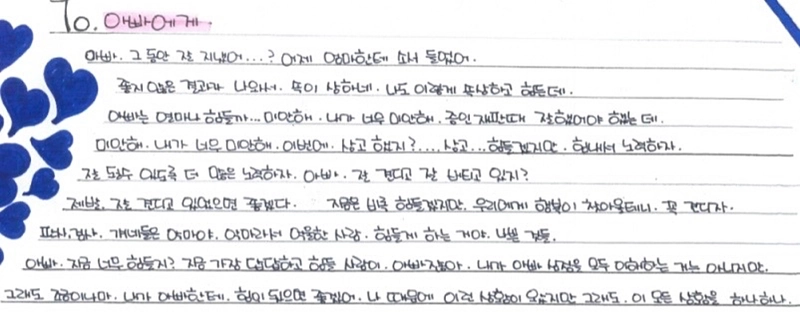 To. 아빠에게.
아빠. 그동안 잘 지냈어...? 어제 엄마한테 소식 들었어.
좋지 않은 결과가 나와서. 속이 상하네. 나도 이렇게 속상하고 힘든데.
아빠는 얼마나 힘들까... 미안해. 내가 너무 미안해. 증인 재판때 잘했어야 했는데.
미안해. 내가 너무 미안해. 이번에. 상고 했지?.... 상고... 힘들겠지만. 힘내서 노력하자.
잘 될수 있도록 더 많은 노력하자. 아빠. 잘 견디고 잘 버티고 있지?
제발. 잘 견디고 있었으면 좋겠다. 지금은 비록 힘들겠지만. 우리에게 행복이 찾아올테니. 꼭 견디자.
판사, 검사. 걔네들은 악마야. 악마라서 억울한 사람. 힘들게 하는 거야. 나쁜 것들.
아빠. 지금 너무 힘들지? 지금 가장 답답하고 힘들 사람이. 아빠잖아. 내가 아빠 심정을 모두 이해하는 거는 아니지만.
그래도 조금이나마. 내가 아빠한테. 힘이 되으면 좋겠어. 나 때문에 이런 상황이 왔지만 그래도. 이 모든 상황을 하나하나.